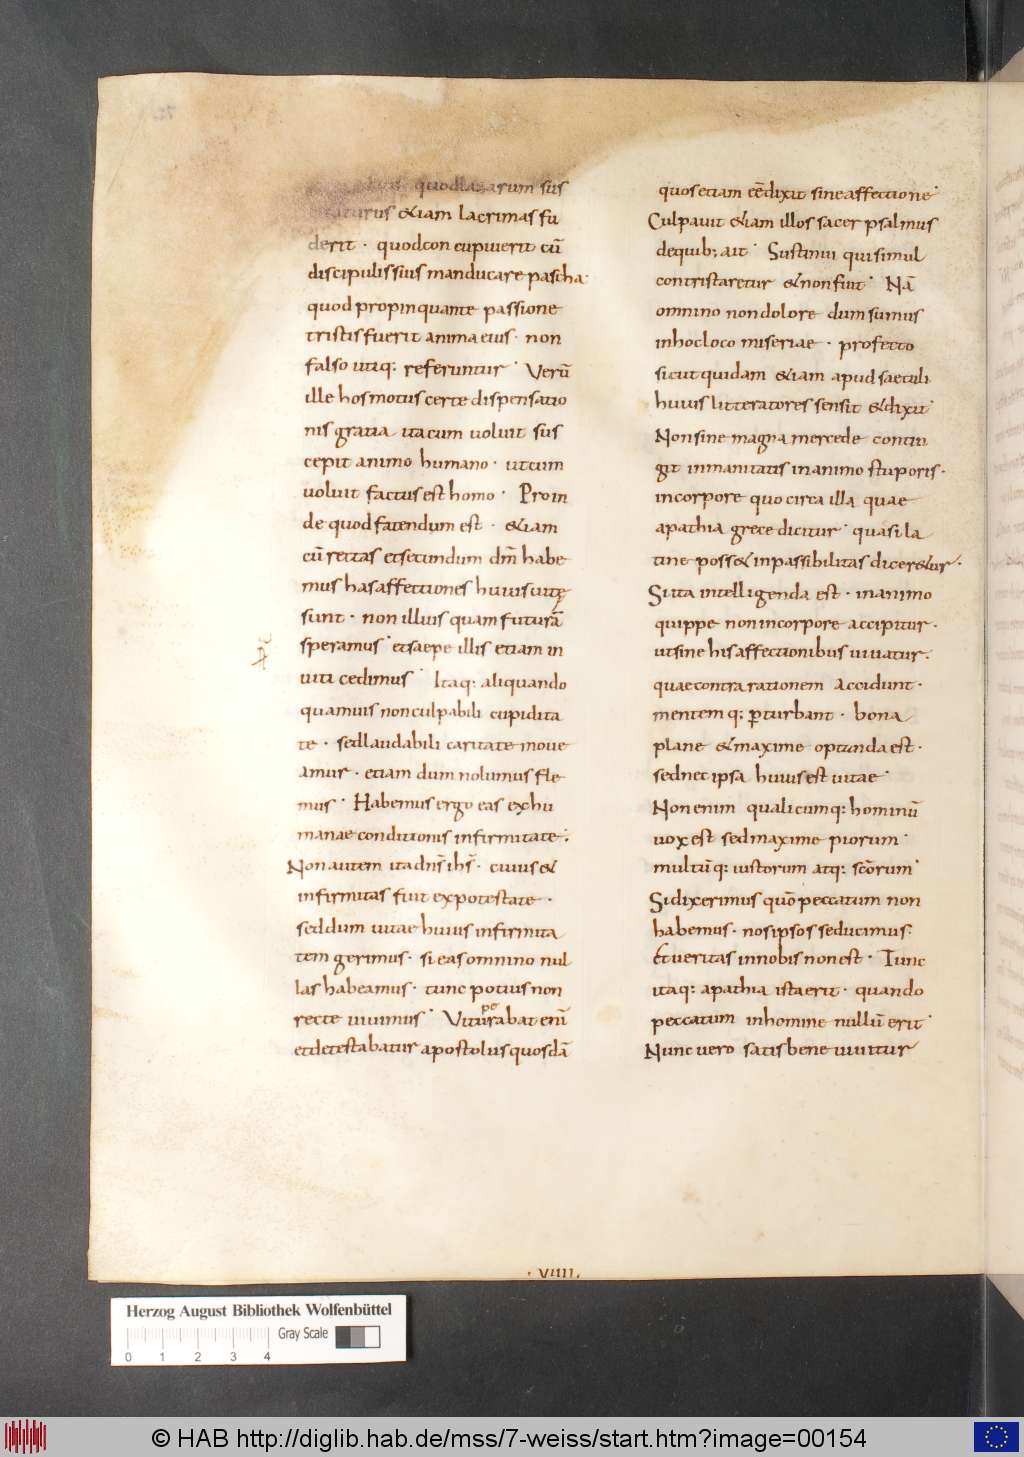 quodlazarum sus
citaturus &iam lacrimas fu
derit · quodconcupiuerit cū
discipulissuis manducare pascha·
quodpropinquante passione
tristisfuerit animaeius · non
falso utiq: referuntur · Verū
ille hosmotuscerte dispensatio
nisgratia itacum uoluit sus
cepit animo humano · utcum
uoluit factusesthomo · Proin
de quodfatendumest · &iam
cū rectas etsecundum dm̄ habe
mus hasaffectiones huiusuitę
sunt · nonillius quamfuturā
speramus · etsaepe illis etiam in
uiti cedimus · Itaq: aliquando
quamuis nonculpabili cupidita
te · sedlaudabili caritate moue
amur · etiam dumnolumus fle
mus · Habemus ergo eas exhu
manae conditionis infirmitate:
Nonautem itadn̄s ih̄s · cuius&
infirmitas fuit expotestate ·
seddum uitae huius infirmita
tem gerimus · sieasomnino nul
las habeamus · tunc potius non
recte uiuimus · Vituperabat enī
etdetestabatur apostolusquosdā
quosetiam eēdixit sineaffectione·
Culpauit &iam illos sacer psalmus
dequib; ait · Sustinui quisimul
contristaretur &nonfuit · Nā
omnino nondolore dumsumus
inhocloco miseriae · profecto
sicutquidam &iam apudsaeculi
huius litteratores sensit &dixit·
Nonsine magna mercede contin
git inmanitatis inanimo stuporis·
incorpore quocirca illa quae
apathia grece dicitur · quasi la
tine poss&inpassibilitas dicer&ur·
Siita intelligenda est · inanimo
quippe nonincorpore accipitur·
utsine hisaffectionibus uiuatur·
quaecontrarationem accidunt·
mentemq: p̄turbant · bona
plane &maxime optanda est·
sednecipsa huiusestuitae ·
Nonenim qualicumq: hominū
uox est sedmaxime piorum ·
multūq: iustorum atq: sc̄orum ·
Sidixerimus quō peccatum non
habemus · nosipsos seducimus:
Etueritas innobisnonest · Tunc
itaq: apathia istaerit · quando
peccatum inhomine nullū erit ·
Nunc uero satisbene uiuitur
·VIIII·
Herzog August Bibliothek Wolfenbüttel
Gray Scale
0 1 2 3 4
© HAB http://diglib.hab.de/mss/7-weiss/start.htm?image=00154